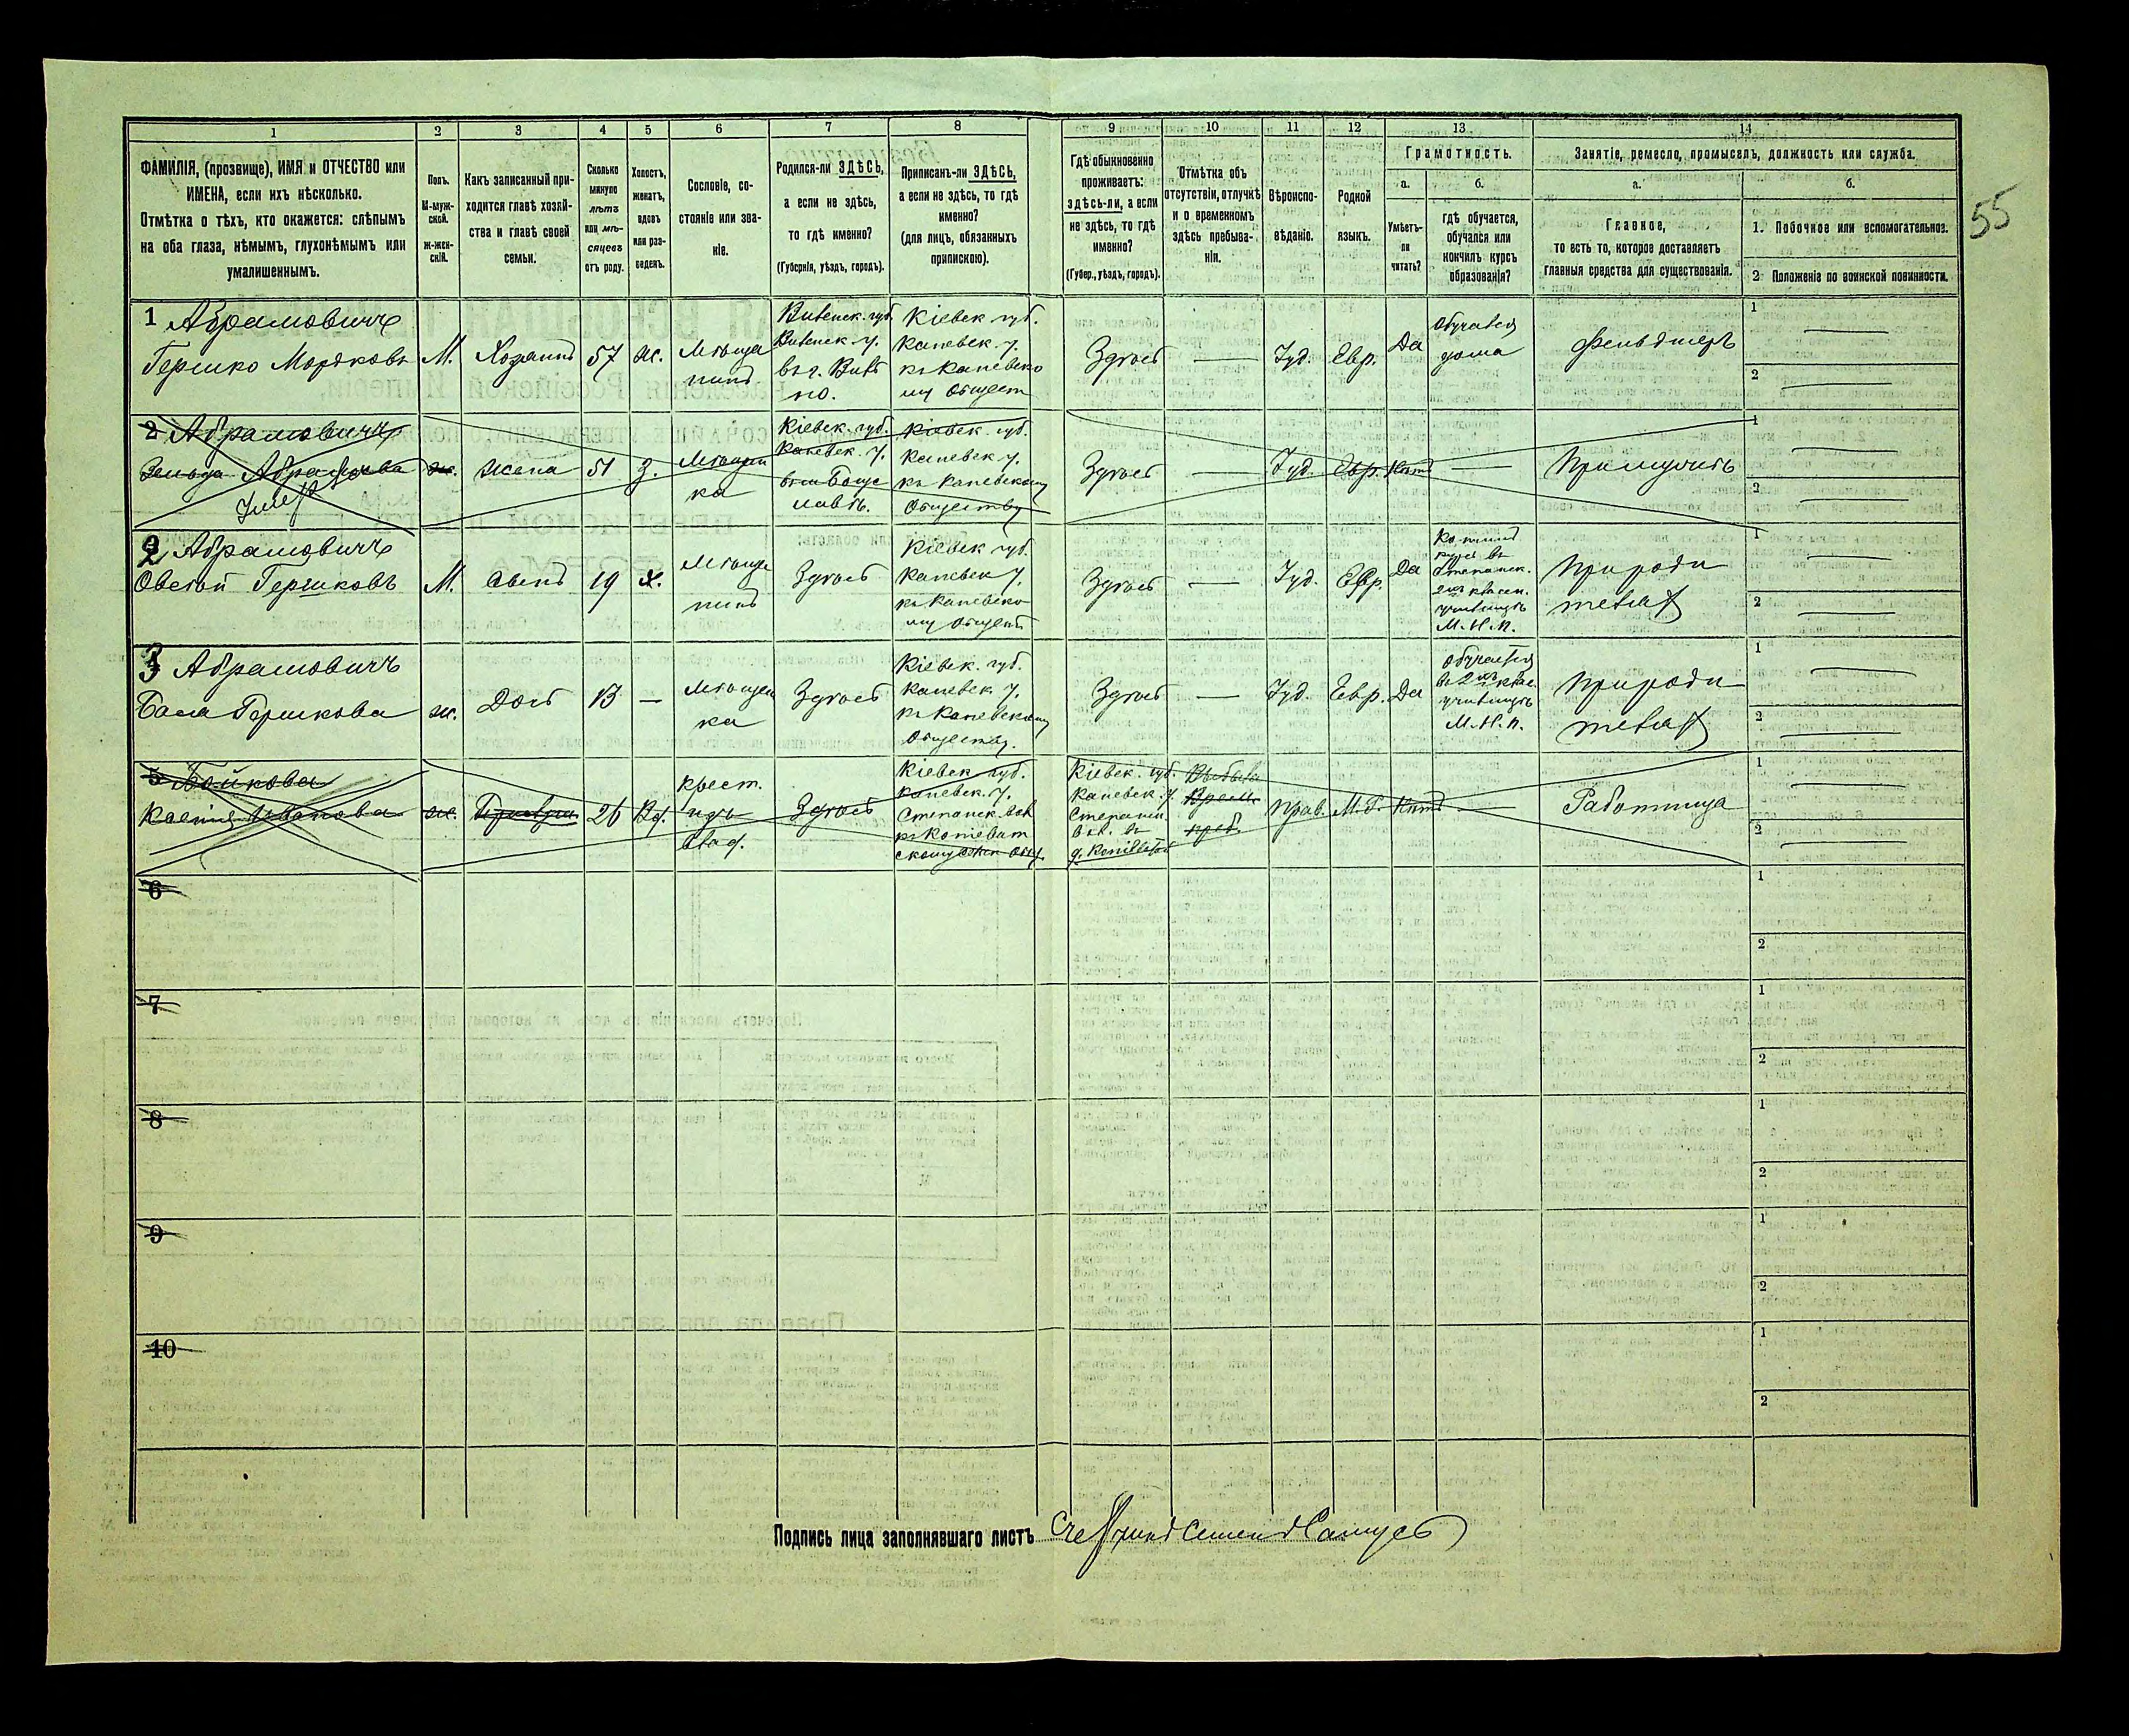 55
1 2 3 4 5 6 7 8 9 10 11 12 13 14
ФАМИЛІЯ, (прозвище), ИМЯ и ОТЧЕСТВО или
ИМЕНА, если ихъ нѣсколько.
Отмѣтка о тѣхъ, кто окажется: слѣпымъ
на оба глаза, нѣмымъ, глухонѣмымъ или
умалишеннымъ.
Полъ.
М-муж-
ской.
Ж-жен-
скій.
Какъ записанный при-
ходится главѣ хозяй-
ства и главѣ своей
семьи.
Сколько
минуло
лѣтъ
или мѣ-
сяцевъ
отъ роду.
Холостъ,
женатъ,
вдовъ
или раз-
веденъ.
Сословіе, со-
стояніе или зва-
ніе.
Родился-ли ЗДѢСЬ,
а если не здѣсь,
то гдѣ именно?
(Губернія, уѣздъ, городъ).
Приписанъ-ли ЗДѢСЬ,
а если не здѣсь, то гдѣ
именно?
(для лицъ, обязанныхъ
припискою).
Гдѣ обыкновенно
проживаетъ:
здѣсь-ли, а если
не здѣсь, то гдѣ
именно?
(Губер., уѣздъ, городъ).
Отмѣтка объ
отсутствіи, отлучкѣ
и о временномъ
здѣсь пребыва-
ніи.
Вѣроиспо-
вѣданіе.
Родной
языкъ.
Грамотность.
а.
Умѣетъ-
ли
читать?
б.
гдѣ обучается,
обучался или
кончилъ курсъ
образованія?
Занятіе, ремесло, промыселъ, должность или служба.
а.
Главное,
то есть то, которое доставляетъ
главныя средства для существованія.
б.
1. Побочное или вспомогательное.
2 Положеніе по воинской повинности.
1 Абрамовичъ
Гершко Мордковъ
М.
Хозяинъ
57
ж.
Мѣща
нинъ
Витебск. губ.
Витебск. у.
въ г. Витеб
Кіевск. губ.
Каневск. у.
къ Каневско
му Общест
Здѣсь
Іуд.
Евр.
Да
Обучался
дома
Фельдшеръ
2 Абрамовичъ
Жена
51
З.
Мѣщан
ка
Кіевск. губ.
Каневск. у.
Кіевск. губ.
Каневск у.
къ Каневскому
Обществу
Здѣсь
Іуд.
Евр.
Нѣтъ
При мужѣ
2 Абрамовичъ
Овсей Гершковъ
М.
Сынъ
19
Х.
Мѣща
нинъ
Здѣсь
Кіевск губ.
Каневск у.
къ Каневско
му Общест
Здѣсь
Іуд.
Евр.
Да
Кончилъ
курсъ въ
Степанск.
2хъ классн.
училищѣ
М. Н. П.
При роди
теляхъ
3 Абрамовичъ
Бася Гершкова
ж.
Дочь
13
Мѣщан
ка
Здѣсь
Кіевск. губ.
Каневск у.
къ Каневскому
Обществу.
Здѣсь
Іуд.
Евр.
Да
Обучается
въ 2хъ клас.
училищѣ
М. Н. П.
При роди
теляхъ
5 Бойкова
ж.
26
Вд.
Крест.
изъ
влад.
Здѣсь
Кіевск. губ.
Каневск. у.
Степанск. вол
Кіевск. губ.
Каневск. у.
Степанск.
вол. въ
Прав.
М. Р.
Нѣтъ
Работница
6
7
8
9
10
Подпись лица заполнявшаго листъ Счетчикъ Семенъ